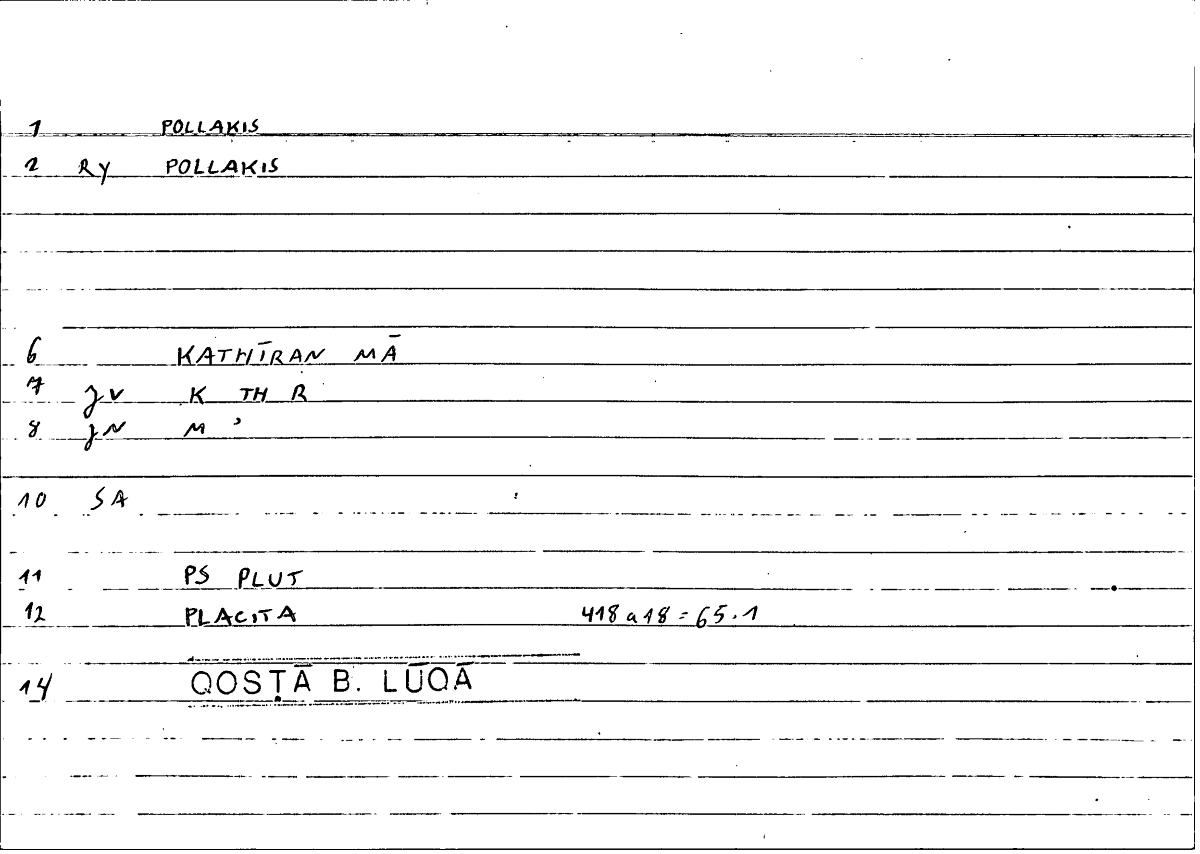 1 POLLAKIS
2 Ry POLLAKIS
6 KATHĪRAN MĀ
7 JV K TH R
8 JN M ʾ
10 SA
11 PS PLUT
12 PLACITA 418 a 18 = 65.1
14 QOSṬĀ B. LŪQĀ